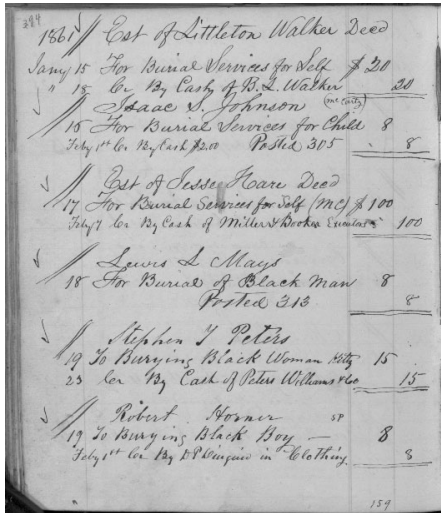 324
1861 // Est of Littleton Walker Deced
Jany 15 For Burial Services for Self $ 20
" 18 Cr By Cash of B. L. Walker 20
// Isaac S. Johnson (McCarty)
16 For Burial Services for Child 8
Feby 1st Cr By Cash $8.00 Posted 305 8
// Est of Jesse Hare Deced
17 For Burial Services for Self (MC) $ 100
Feby 7 Cr By Cash of Miller & Booker Executors 100
// Lewis L Mays
18 For Burial of Black Man 8
Posted 313 8
// Stephen T Peters
19 To Burying Black Woman Kitty 15
23 Cr By Cash of Peters Williams & Co 15
// Robert Horner SP
19 To Burying Black Boy — 8
Feby 1st Cr By in Clothing 8
159